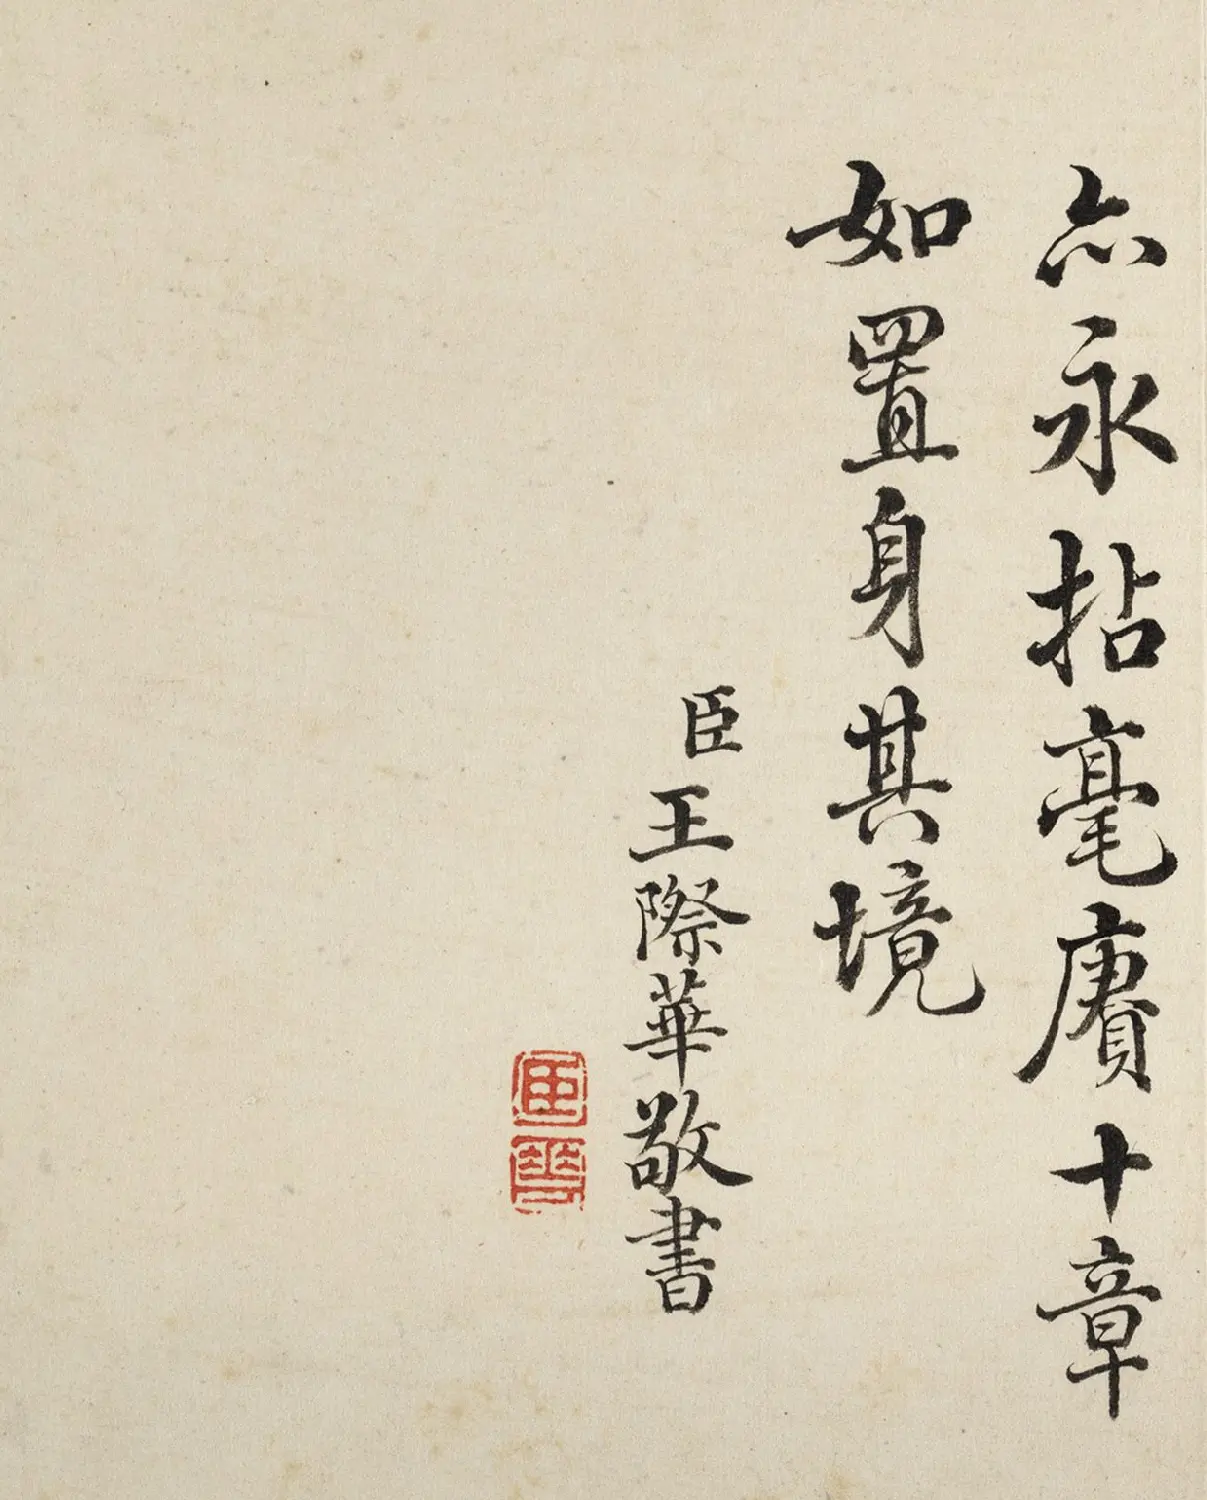 亦永拈毫賡十章
如置身其境
臣王際華敬書
臣
華